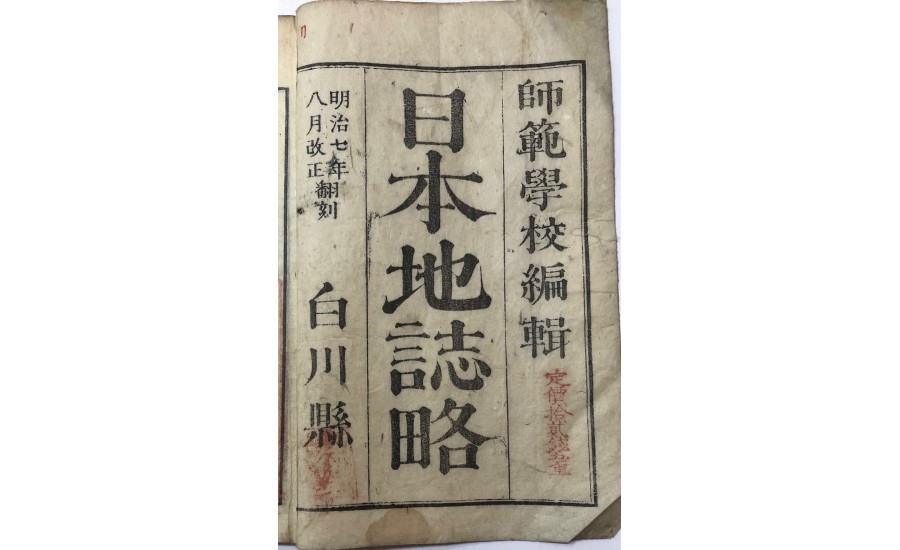 師範學校編輯
定價拾貳錢五厘
日本地誌略
明治七年翻刻
八月改正
白川縣